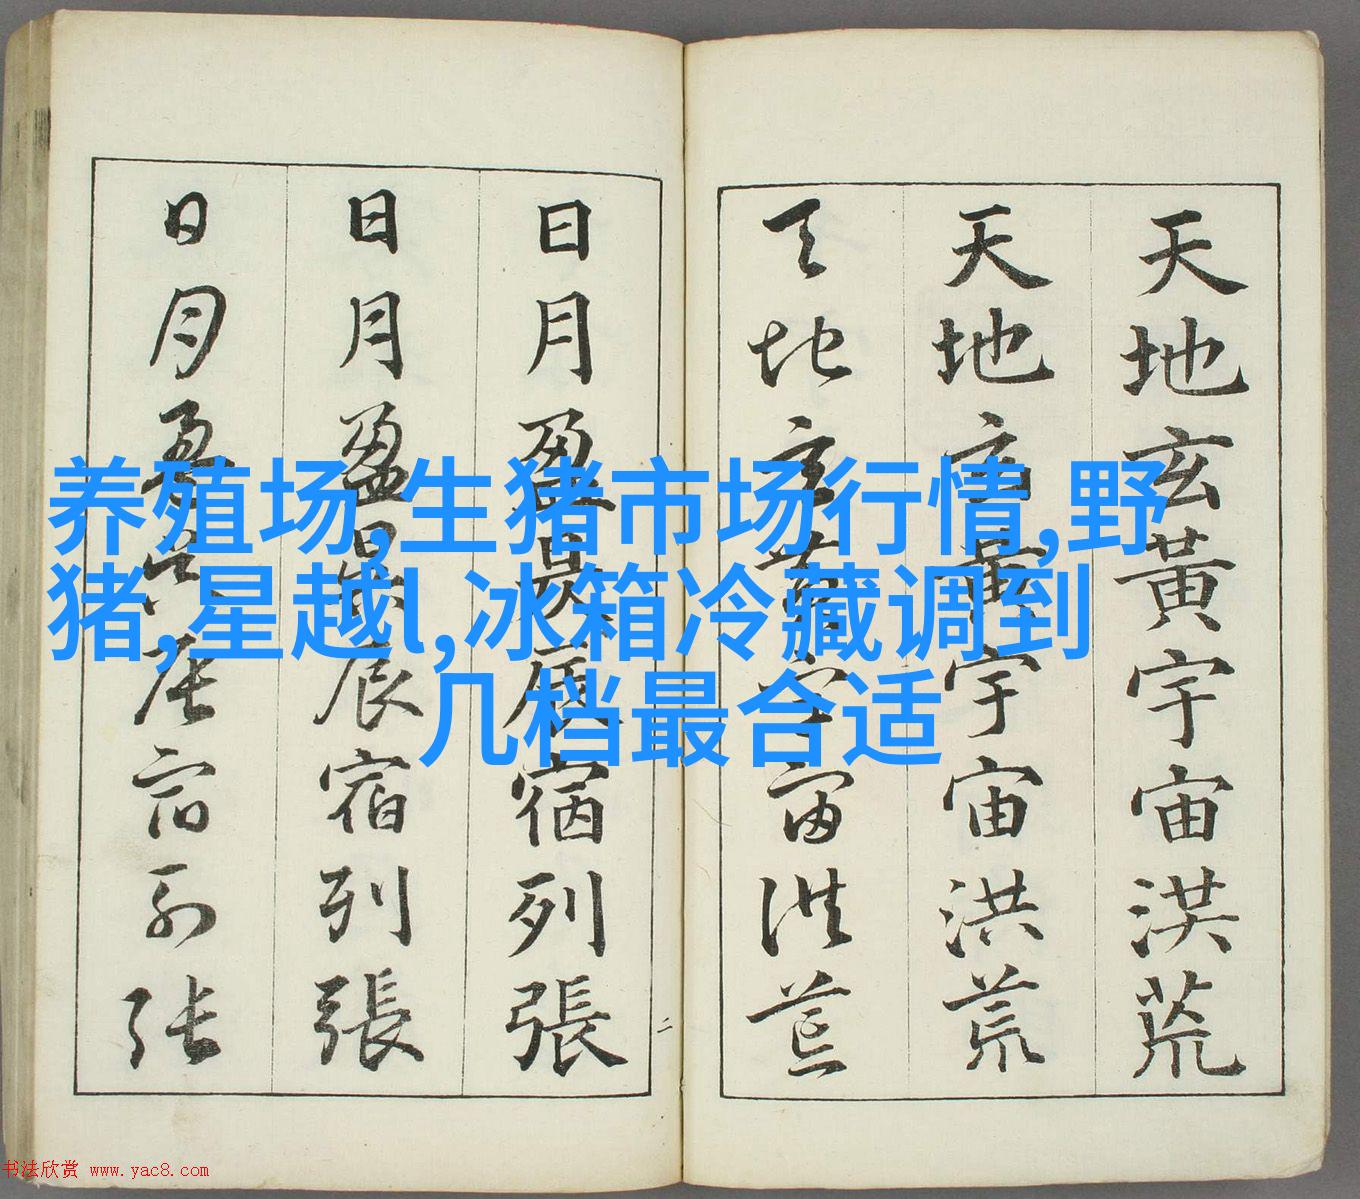 天地玄黃宇宙洪荒
天地玄黃宇宙洪荒
天地玄黃宇宙洪荒
日月盈昃辰宿列張
日月盈昃辰宿列張
日月盈昃辰宿列張
二
养殖场,生猪市场行情,野
猪,星越l,冰箱冷藏调到
几档最合适
书法欣赏 www.yac8.com